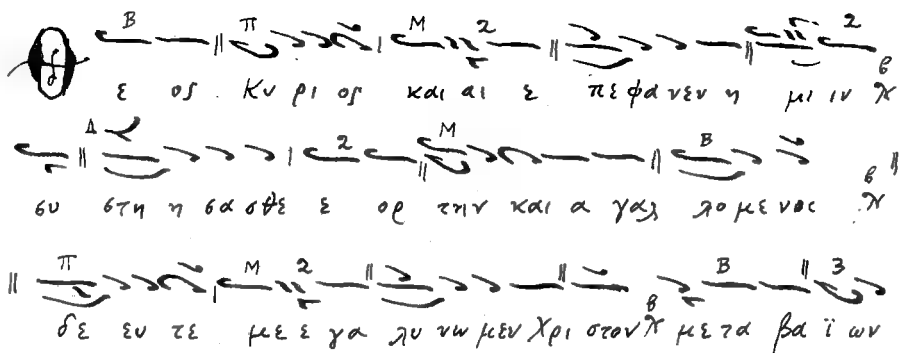 Θε ος Κυ ρι ος και αι ε πεφα νεν η μι ιν
συ στη η σα σθε ε ορ την και α γαλ λο με νοι
δε ευ τε με ε γα λυ νω μεν Χρι στον με τα βα ϊ ων